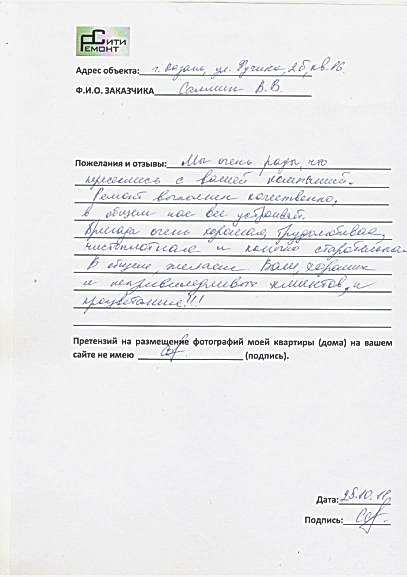 СИТИ
РЕМОНТ
Адрес объекта: г. Казань, ул. Фучика, 2б, кв.16.
Ф.И.О. ЗАКАЗЧИКА В.В.
Пожелания и отзывы: Мы очень рады, что
с вашей компанией.
Ремонт выполнен качественно,
в общем нас все устраивает.
Бригада очень хорошая, трудолюбивая,
чистоплотная и
В общем желаем Вам хороших
и непривередливых клиентов, и
процветание!!!
Претензий на размещение фотографий моей квартиры (дома) на вашем
сайте не имею (подпись).
Дата: 28.10.
Подпись: